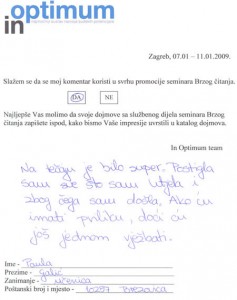 in optimum
Zagreb, 07.01 – 11.01.2009.
Slažem se da se moj komentar koristi u svrhu promocije seminara Brzog čitanja.
DA NE
Najljepše Vas molimo da svoje dojmove sa službenog dijela seminara Brzog
čitanja zapišete ispod, kako bismo Vaše impresije uvrstili u katalog dojmova.
In Optimum team
Na tečaju je bilo super. Postigla
sam sve što sam htjela i
zbog čega sam došla. Ako ću
imati priliku, doći ću
još jednom vježbati.
Ime - Paula
Prezime - Galić
Zanimanje - učenica
Poštanski broj i mjesto - 10257 Brezovica